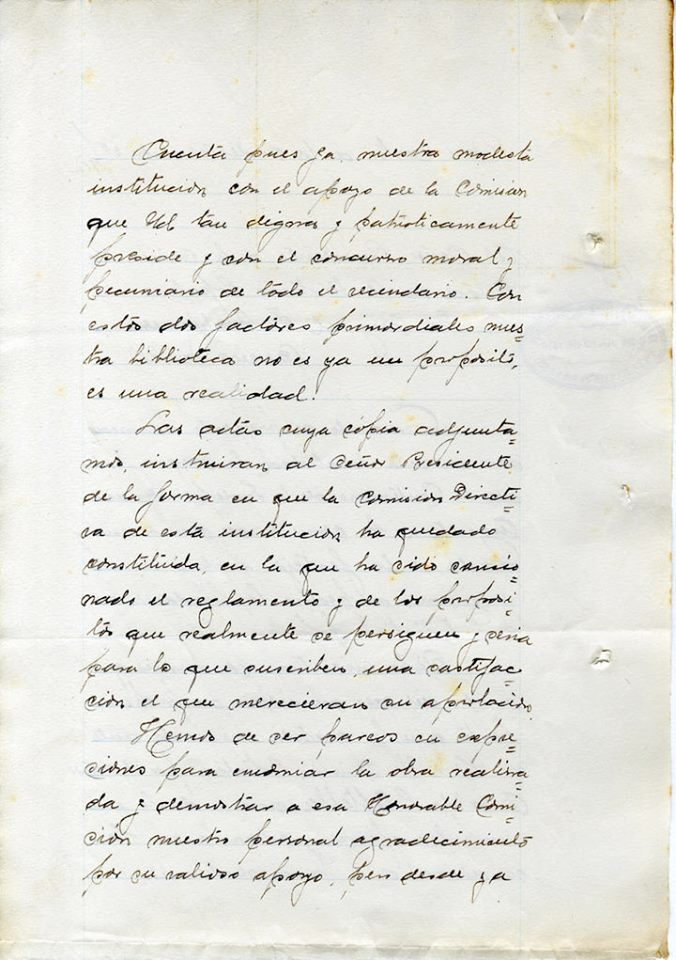 Cuenta pues ya nuestra modesta
institucion con el apoyo de la Comision
que Ud tan digna y patrioticamente
preside y con el concurso moral y
pecuniario de todo el vecindario. Con
estos dos factores primordiales nues=
tra biblioteca no es ya un proposito,
es una realidad.
Las actas cuya copia adjunta=
mos, instruiran al Ceñor Presidente
de la forma en que la Comision Directi=
va de esta institucion ha quedado
constituida, en la que ha cido sancio=
nado el reglamento y de los proposi=
tos que realmente se persiguen y seria
para lo que suscriben, una satisfac=
cion el que merecieran su aprobacion.
Hemos de ser parcos en expre=
ciones para encomiar la obra realisa=
da y demostrar a esa Honorable Comi=
ción nuestro personal agradecimiento
por su valioso apoyo, pero desde ya